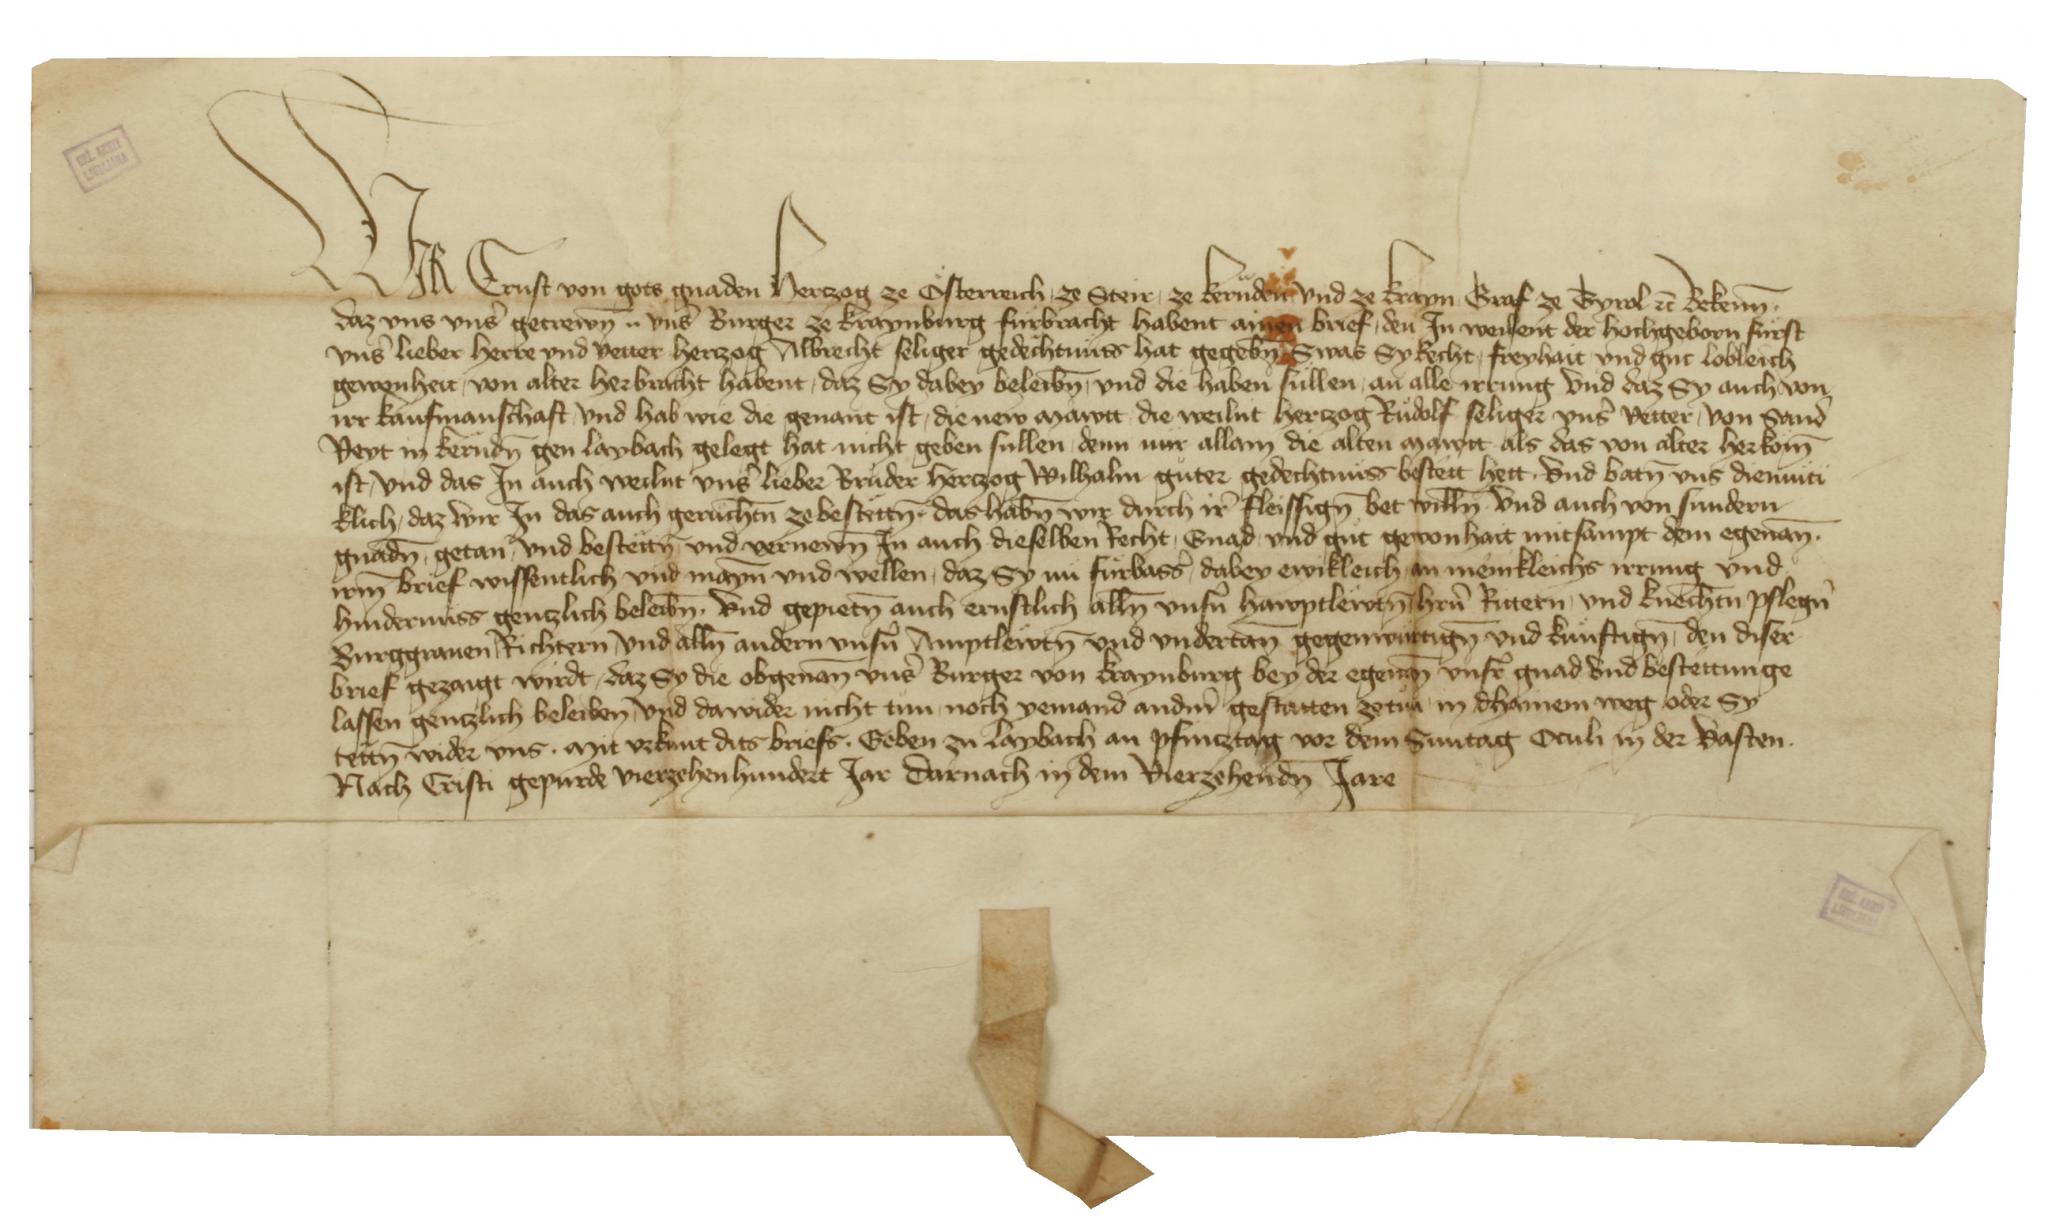 WIR Ernst von gots gnaden Hertzog ze Österreich, ze Steir, ze Kernden vnd ze Krayn Graf ze Tyrol ꝛc Bekenn̄.
daz vns vnsˀ getrewn̄ .. vnsˀ Burger ze Kraynburg fürbracht habent ainen brief, den In weilent der hochgeborn fürst
vnsˀ lieber herre vnd vetter hertzog Albrecht seliger gedechtnüss hat gegebn̄ Swas Sy Recht, freyhait, vnd gut lobleich
gewonheit, von alter herbracht habent, daz Sy dabey beleibn̄, vnd die haben süllen, an alle irrung Vnd daz Sy auch von
irr kaufmanschaft, vnd hab wie die genant ist, die new mawtt, die weilnt hertzog Rudolf seliger vnsˀ vetter, von Sand
Veyt in kerndn̄ gen Laybach gelegt hat nicht geben sullen, denn nur allain die alten mawtt, als das von alter herkom̄
ist, vnd das In auch weilnt vnsˀ lieber Bruder hertzog Wilhalm guter gedechtnüss bestett hett. Vnd batn̄ vns diemuti
klich, daz wir In das auch geruchtn̄ ze bestettn̄. das habn̄ wir durch irˀ fleissign̄ bet willn̄ Vnd auch von sundern
gnadn̄, getan, vnd bestettn̄ vnd vernewn̄ In auch dieselben Recht, Gnad, vnd gut gewonhait mitsampt dem egenan̄.
irm̄ brief wissentlich vnd mayn̄ vnd wellen, daz Sy nu fürbassˀ, dabey ewikleich, an menikleichs irrung vnd
hindernüss gentzlich beleibn̄. Vnd gepietn̄ auch ernstlich alln̄ vnsˀn hawptlewtn̄, hˀrn Rittern, vnd knechtn̄ pflegˀn
Burggrauen, Richtern, vnd alln̄ andern vnsˀn Amptlewtn̄ vnd vndertan̄ gegenwürtign̄ vnd künftign̄, den diser
brief gezaigt wirdt, daz Sy die obgenan̄ vnsˀ Burger von Kraynburg bey der egenan̄ vnsˀr gnad vnd bestettunge
lassen gentzlich beleiben, Vnd dawider nicht tun, noch yemand andˀm gestatten ze tun, in dhainem weg oder Sy
tettn̄ wider vns. Mit vrkunt dits briefs. Geben zu Laybach an Pfincztag vor dem Suntag Oculi in der Vasten.
Nach Cristi gepurde vierzehenhundert Jar darnach in dem Vierzehendn̄ Jare